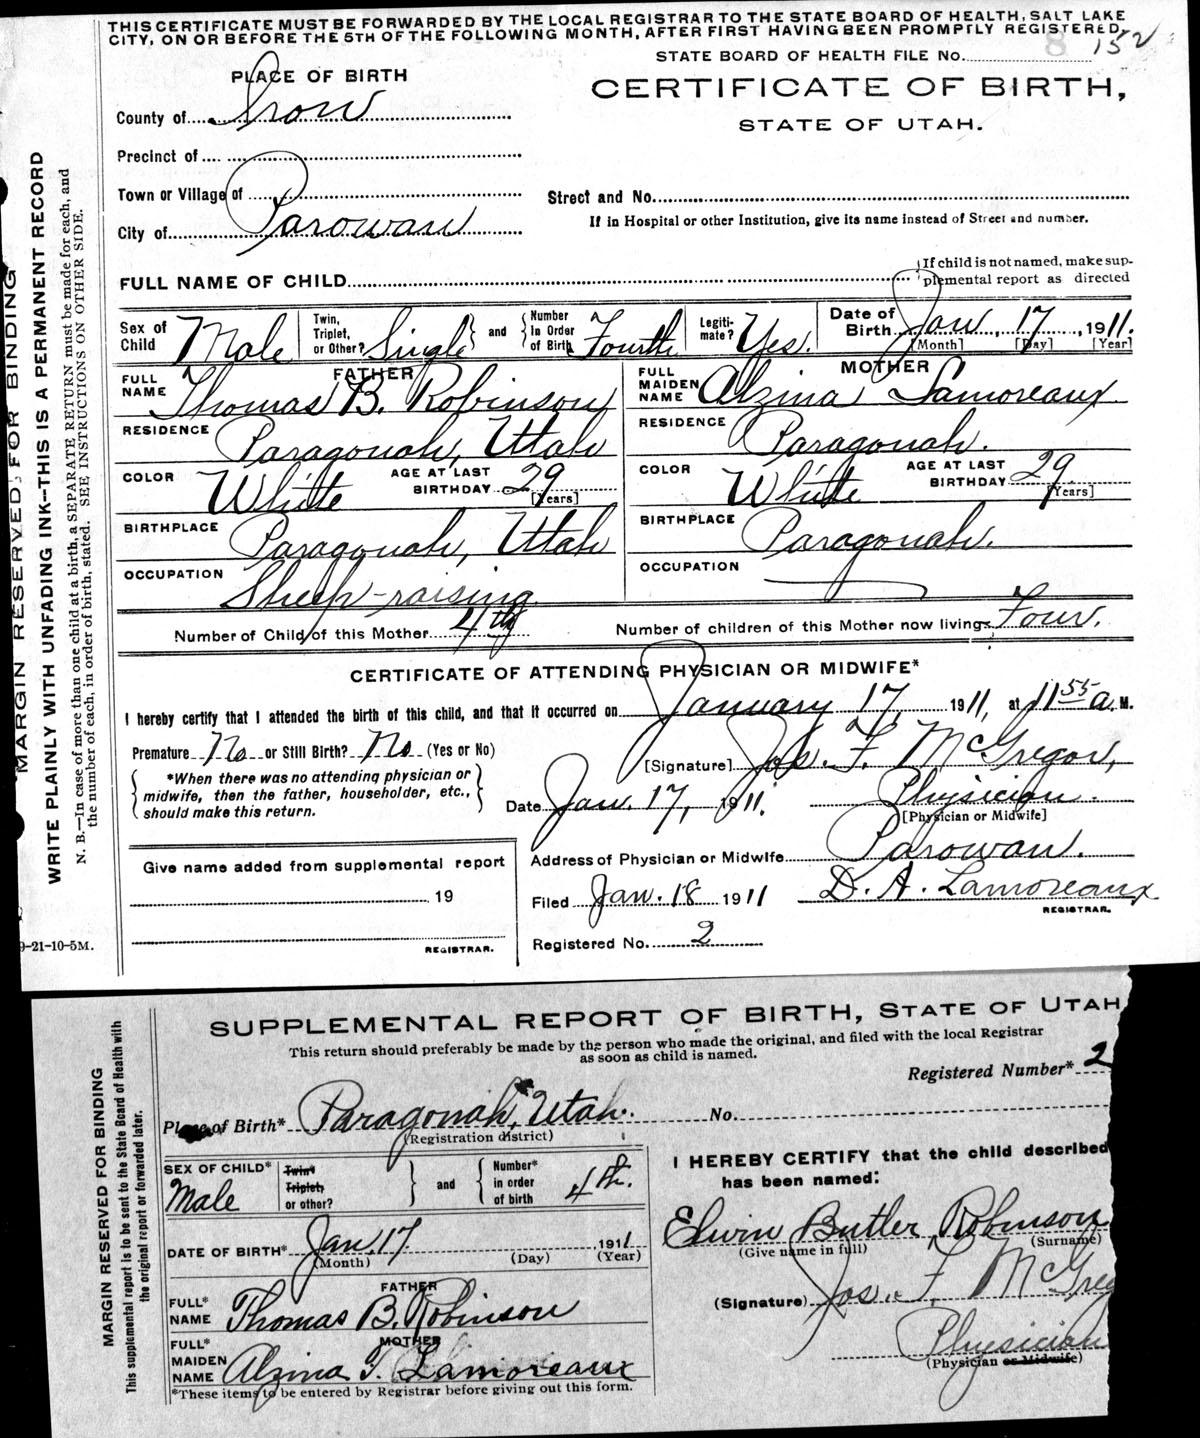 THIS CERTIFICATE MUST BE FORWARDED BY THE LOCAL REGISTRAR TO THE STATE BOARD OF HEALTH, SALT LAKE
CITY, ON OR BEFORE THE 5TH OF THE FOLLOWING MONTH, AFTER FIRST HAVING BEEN PROMPTLY REGISTERED.
8 152
STATE BOARD OF HEALTH FILE No.
PLACE OF BIRTH
CERTIFICATE OF BIRTH,
STATE OF UTAH.
County of Iron
Precinct of
Town or Village of
Street and No.
City of Parowan
If in Hospital or other Institution, give its name instead of Street and number.
FULL NAME OF CHILD
If child is not named, make sup-
plemental report as directed
Sex of Child Male
Twin, Triplet, or Other? Single
and
Number In Order of Birth Fourth
Legiti-mate? Yes.
Date of Birth Jan. 17, 1911.
[Month] [Day] [Year]
FATHER
FULL NAME Thomas B. Robinson
RESIDENCE Paragonah, Utah
COLOR White
AGE AT LAST BIRTHDAY 29 [Years]
BIRTHPLACE Paragonah, Utah
OCCUPATION Sheep-raising
MOTHER
FULL MAIDEN NAME Alzina Lamoreaux
RESIDENCE Paragonah.
COLOR White
AGE AT LAST BIRTHDAY 29 [Years]
BIRTHPLACE Paragonah.
OCCUPATION
Number of Child of this Mother 4th
Number of children of this Mother now living Four.
CERTIFICATE OF ATTENDING PHYSICIAN OR MIDWIFE*
I hereby certify that I attended the birth of this child, and that it occurred on January 17, 1911, at 11 55 a. M.
Premature No or Still Birth? No (Yes or No)
[Signature] Jos. F. McGregor,
*When there was no attending physician or
midwife, then the father, householder, etc.,
should make this return.
Date Jan. 17, 1911. Physician.
[Physician or Midwife]
Address of Physician or Midwife Parowan.
Give name added from supplemental report
19
REGISTRAR.
Filed Jan. 18 1911 D. A. Lamoreaux
REGISTRAR.
Registered No. 2
MARGIN RESERVED FOR BINDING
WRITE PLAINLY WITH UNFADING INK--THIS IS A PERMANENT RECORD
N. B.—In case of more than one child at a birth, a SEPARATE RETURN must be made for each, and
the number of each, in order of birth, stated. SEE INSTRUCTIONS ON OTHER SIDE.
9-21-10-5M.
SUPPLEMENTAL REPORT OF BIRTH, STATE OF UTAH
This return should preferably be made by the person who made the original, and filed with the local Registrar
as soon as child is named.
Registered Number* 2
Place of Birth* Paragonah, Utah. No.
(Registration district)
SEX OF CHILD* Male
Twin* Triplet, or other?
and
Number* in order of birth 4th.
DATE OF BIRTH* Jan. 17 1911
(Month) (Day) (Year)
FATHER
FULL* NAME Thomas B. Robinson
MOTHER
FULL* MAIDEN NAME Alzina T. Lamoreaux
*These items to be entered by Registrar before giving out this form.
I HEREBY CERTIFY that the child described
has been named:
Elwin Butler Robinson
(Give name in full) (Surname)
(Signature) Jos. F. McGreg
Physician
(Physician or Midwife)
MARGIN RESERVED FOR BINDING
This supplemental report is to be sent to the State Board of Health with
the original report or forwarded later.